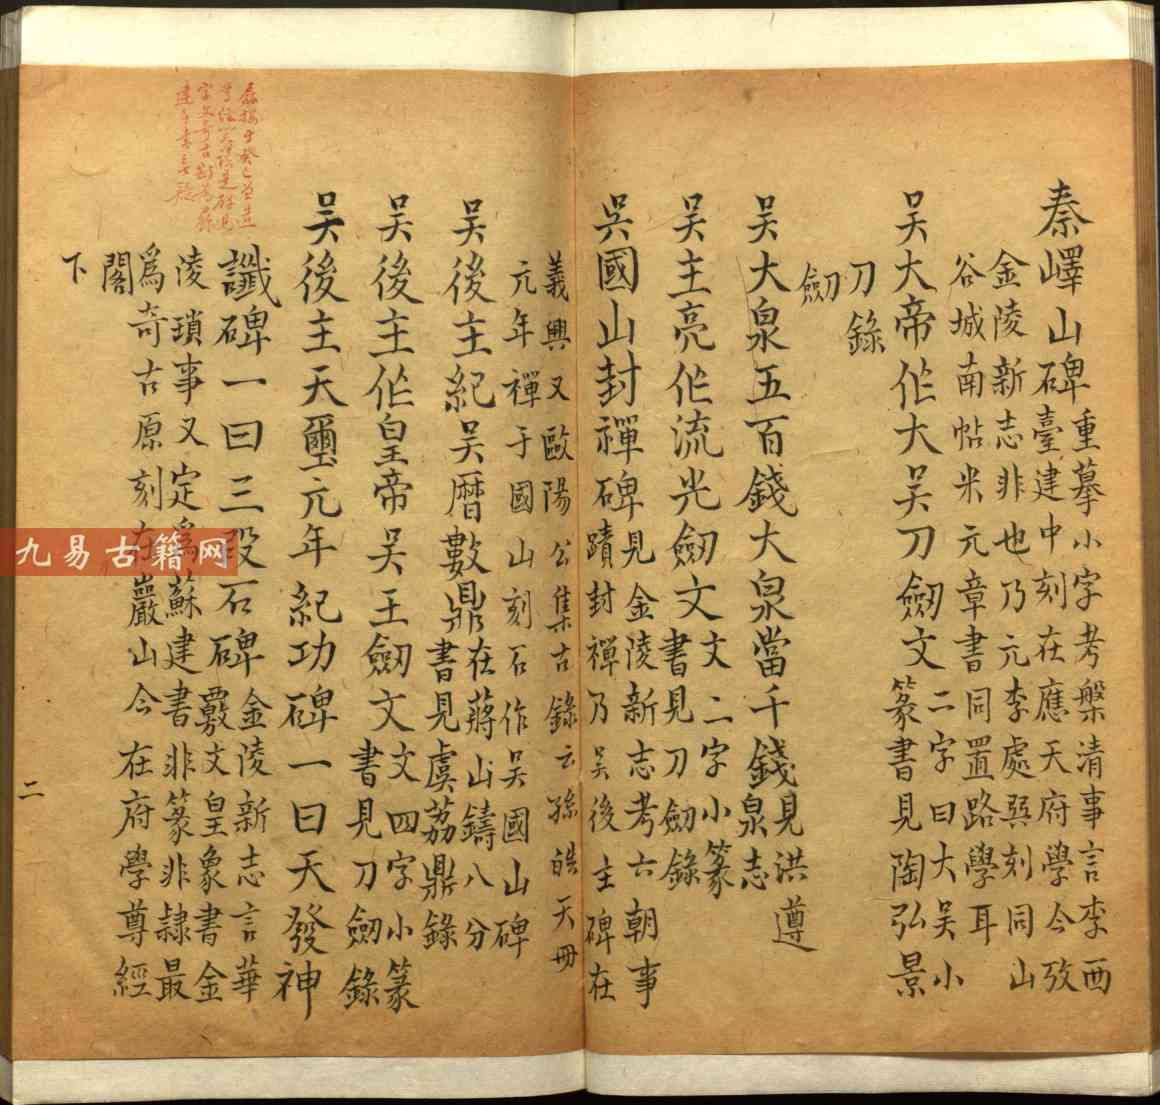 秦嶧山碑重摹小字考槃清事言李西
臺建中刻在應天府學今攷
金陵新志非也乃元李處巽刻同山
谷城南帖米元章書同置路學耳
吴大帝作大吴刀劒文二字曰大吴小
篆書見陶弘景
刀錄
劒
吴大泉五百錢大泉當千錢見洪遵
泉志
吴主亮作流光劒文文二字小篆
書見刀劒錄
吳國山封禪碑見金陵新志考六朝事
蹟封禪乃吴後主碑在
義興又歐陽公集古錄云孫皓天冊
元年禪于國山刻石作吴國山碑
吴後主紀吴暦數鼎在蔣山鑄八分
書見虞荔鼎錄
吴後主作皇帝吴王劒文文四字小篆
書見刀劒錄
吴後主天璽元年紀功碑一曰天發神
讖碑一曰三段石碑金陵新志言華
覈文皇象書金
陵瑣事又定為蘇建書非篆非隷最
爲奇古原刻在巖山今在府學尊經
閣
下
二
九易古籍网